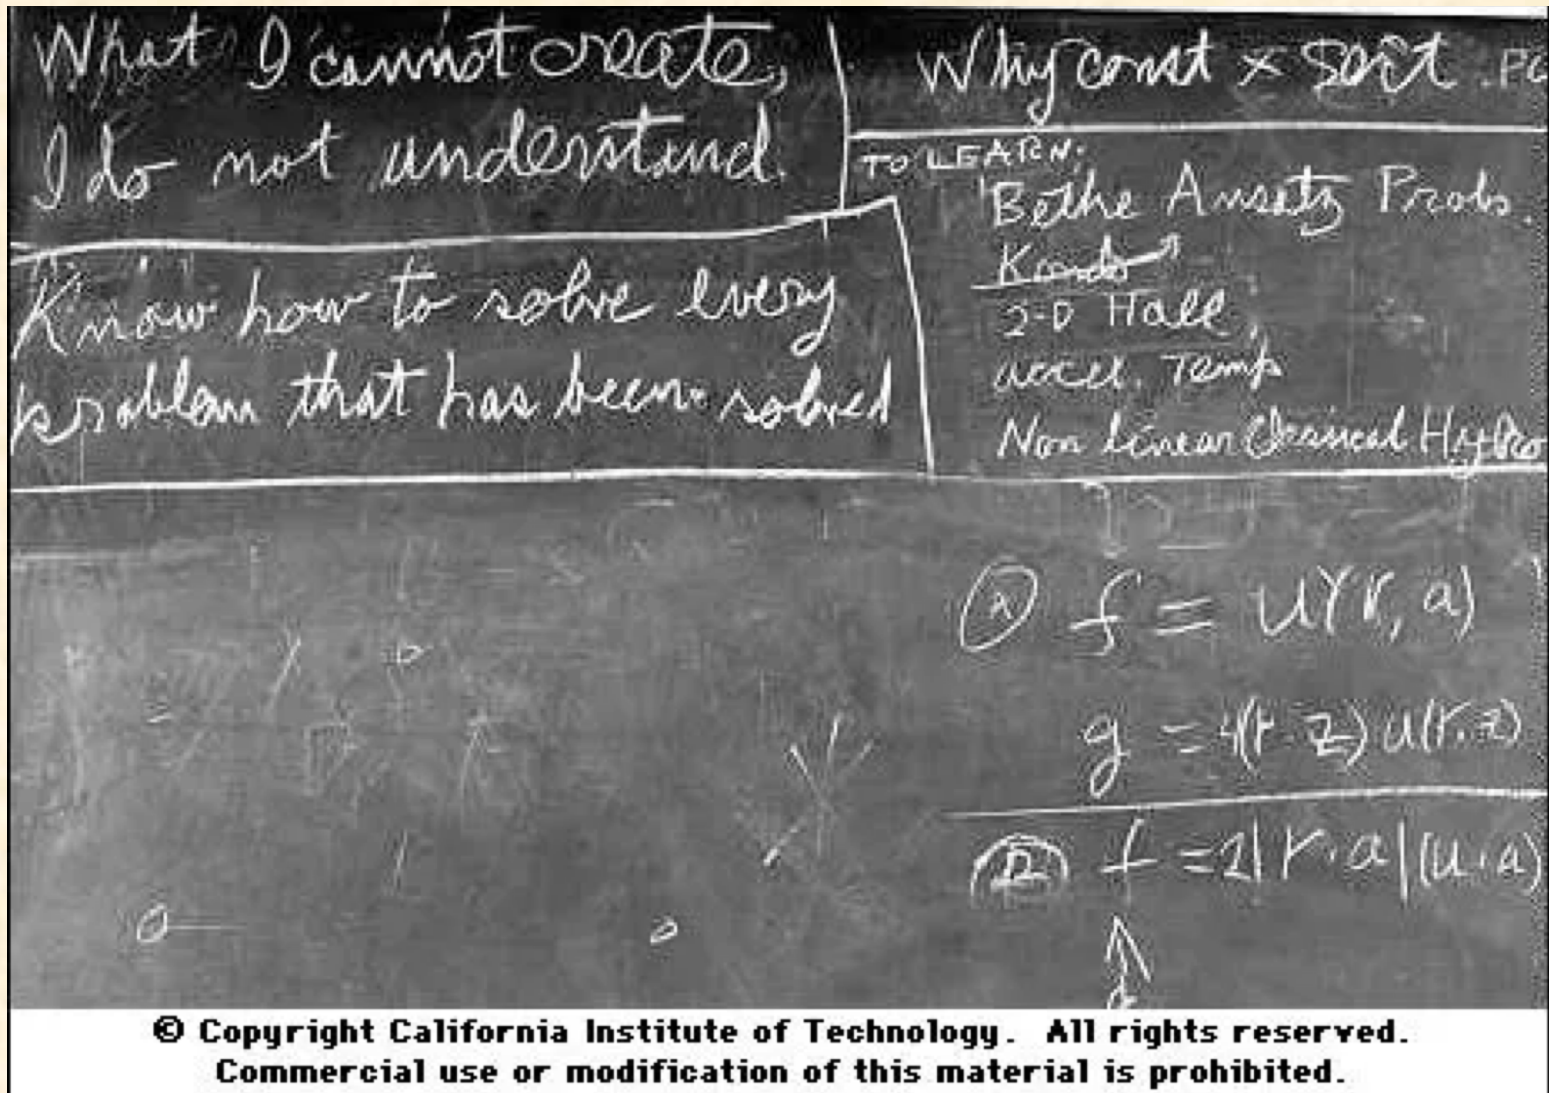 What I cannot create,
I do not understand.
Know how to solve every
problem that has been solved
Why const × sort . PO
TO LEARN:
Bethe Ansatz Probs.
Kondo
2-D Hall
accel. Temp
Non Linear Classical Hydro
f = u(r, a)
g = 4(r z) u(r, z)
f = 2|r·a|(u·a)
© Copyright California Institute of Technology. All rights reserved.
Commercial use or modification of this material is prohibited.